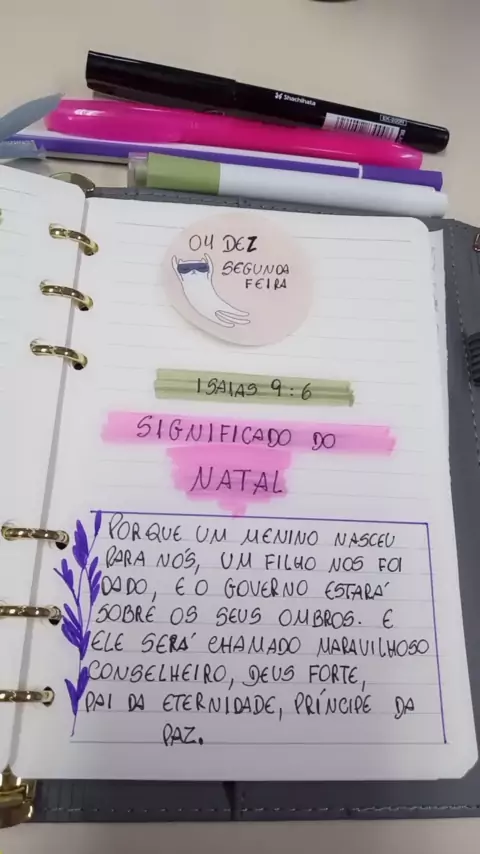 Shachihata
04 DEZ
SEGUNDA
FEIRA
ISAIAS 9:6
SIGNIFICADO DO
NATAL
PORQUE UM MENINO NASCEU
PARA NÓS, UM FILHO NOS FOI
DADO, E O GOVERNO ESTARÁ
SOBRE OS SEUS OMBROS. E
ELE SERÁ CHAMADO MARAVILHOSO
CONSELHEIRO, DEUS FORTE,
PAI DA ETERNIDADE, PRÍNCIPE DA
PAZ.